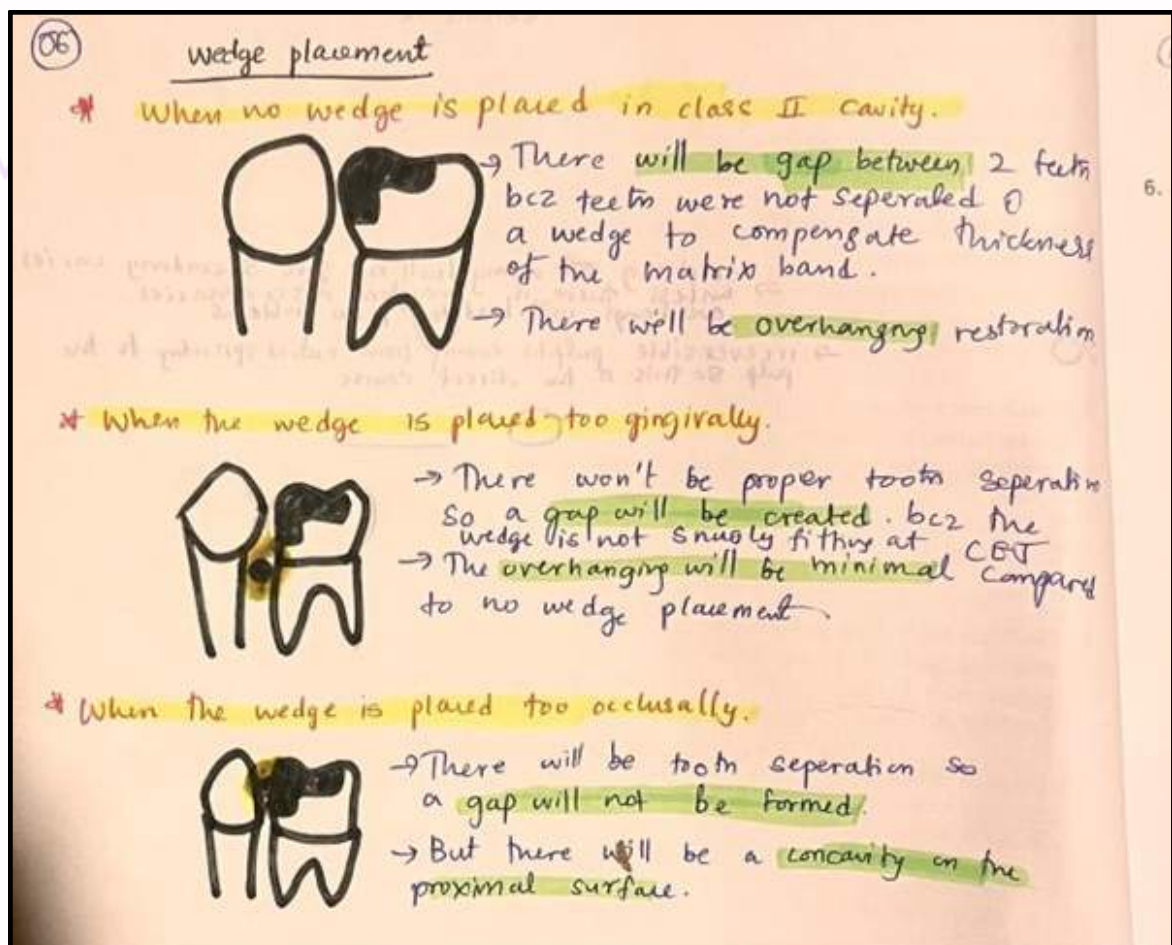 06
wedge placement
* When no wedge is placed in class II cavity.
→ There will be gap between 2 teeth
bcz teeth were not seperated
a wedge to compensate thickness
of the matrix band.
→ There well be overhanging restoration
6.
* When the wedge is placed too gingivally.
→ There won't be proper tooth seperation
so a gap will be created. bcz the
wedge is not snugly fitting at CEJ
→ The overhanging will be minimal compared
to no wedge placement.
* When the wedge is placed too occlusally.
→ There will be tooth seperation so
a gap will not be formed.
→ But there will be a concavity on the
proximal surface.